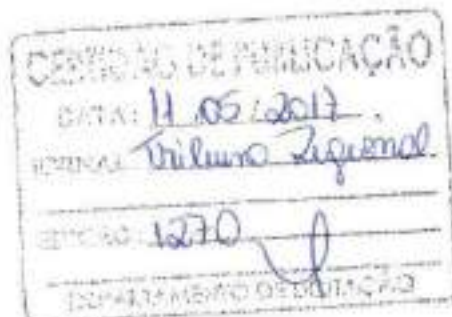 CERTIDÃO DE PUBLICAÇÃO
DATA: 11.05/2017.
JORNAL: Tribuna Regional
EDIÇÃO: 1270
DEPARTAMENTO DE LICITAÇÃO